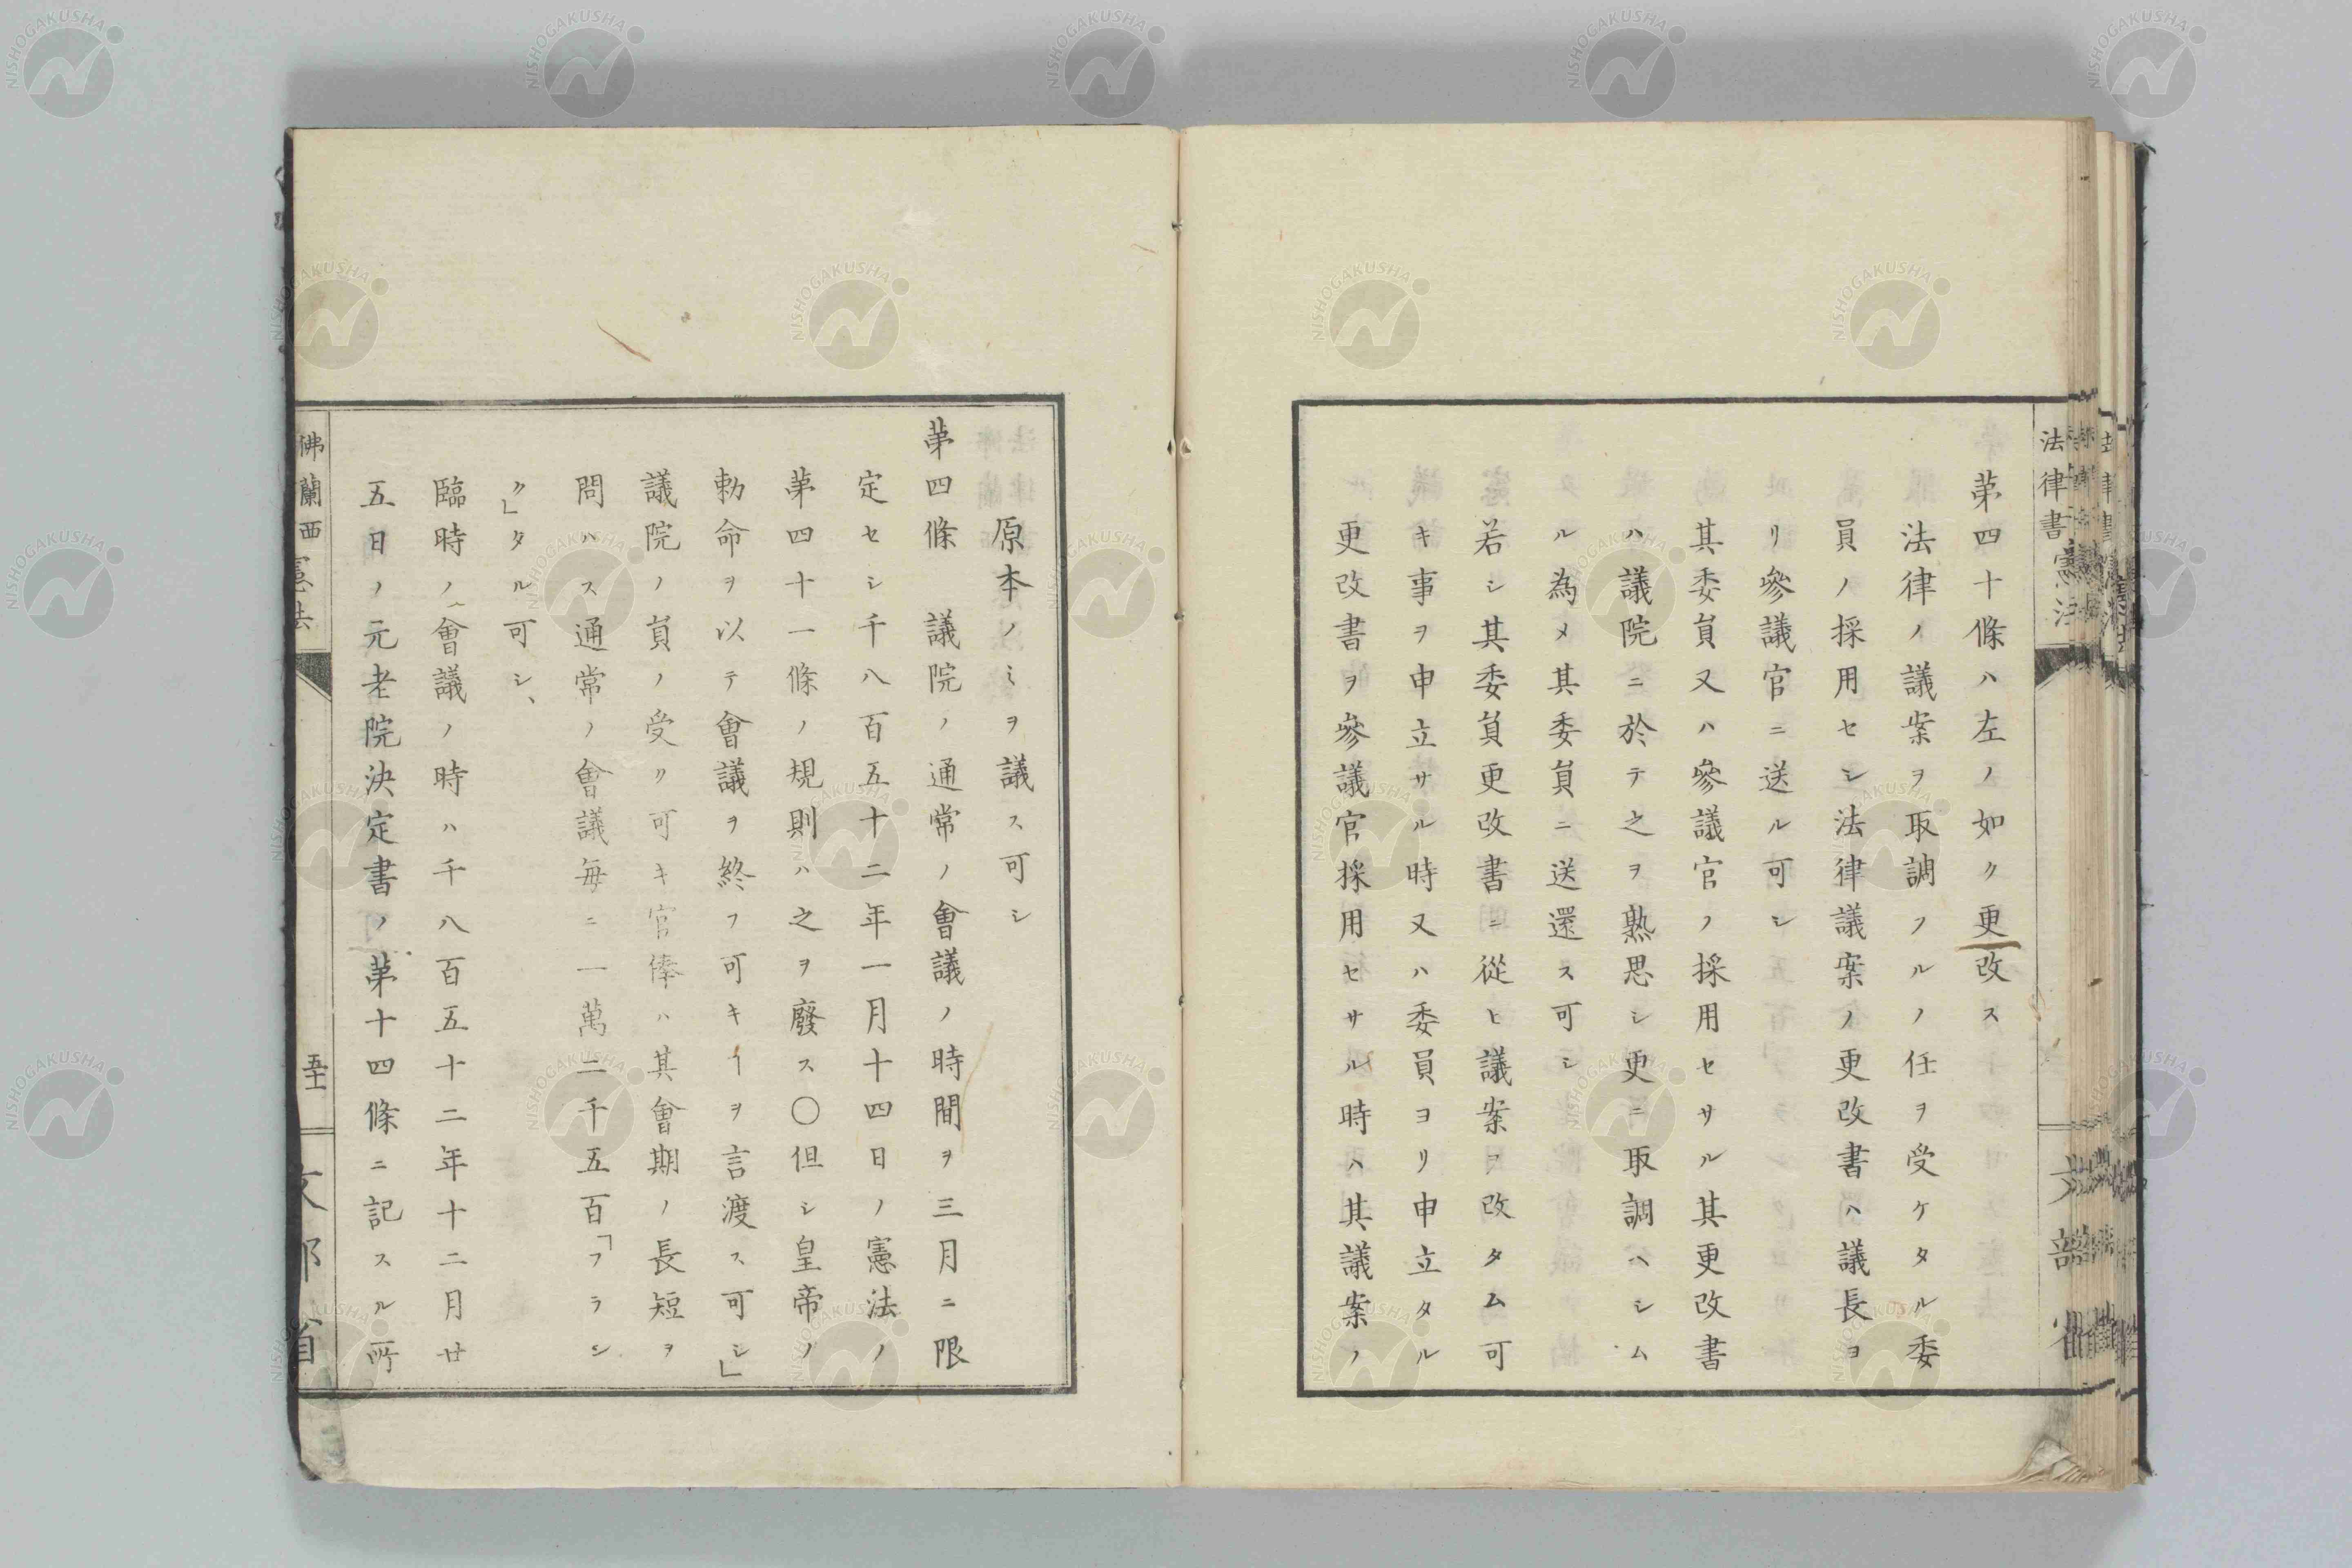 第四十條ハ左ノ如ク更改ス
法律ノ議案ヲ取調フルノ任ヲ受ケタル委
員ノ採用セシ法律議案ノ更改書ハ議長ヨ
リ參議官ニ送ル可シ
其委員又ハ參議官ノ採用セサル其更改書
ハ議院ニ於テ之ヲ熟思シ更ニ取調ヘシム
ル為メ其委員ニ送還ス可シ
若シ其委員更改書ニ從ヒ議案ヲ改タム可
キ事ヲ申立サル時又ハ委員ヨリ申立タル
更改書ヲ參議官採用セサル時ハ其議案ノ
原本ノミヲ議ス可シ
第四條 議院ノ通常ノ會議ノ時間ヲ三月ニ限
定セシ千八百五十二年一月十四日ノ憲法ノ
第四十一條ノ規則ハ之ヲ廢ス〇但シ皇帝ノ
勅命ヲ以テ會議ヲ終フ可キヿヲ言渡ス可シ」
議院ノ員ノ受ク可キ官俸ハ其會期ノ長短ヲ
問ハス通常ノ會議毎ニ一萬二千五百「フラン
ク」タル可シ、
臨時ノ會議ノ時ハ千八百五十二年十二月廿
五日ノ元老院決定書ノ第十四條ニ記スル所
法律書
佛蘭西憲法
五十一
文部省
NISHOGAKUSHA